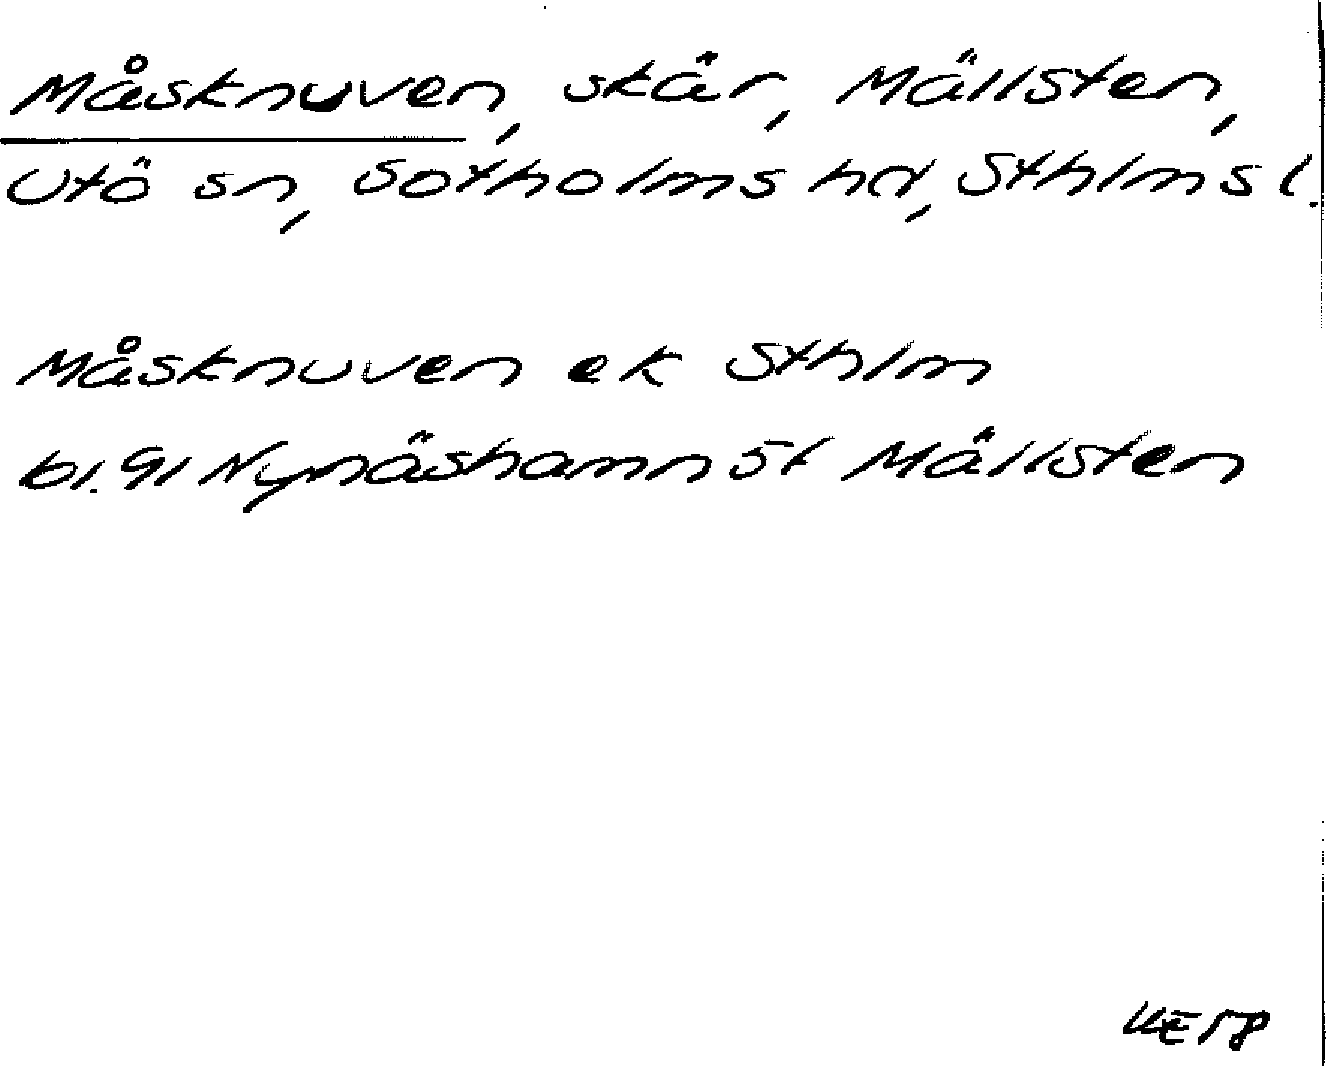 Måsknuven, skär, Mällsten,
Utö sn, Sotholms hd, Sthlms l.
Måsknuven ek Sthlm
bl. 91 Nynäshamn 5f Mällsten